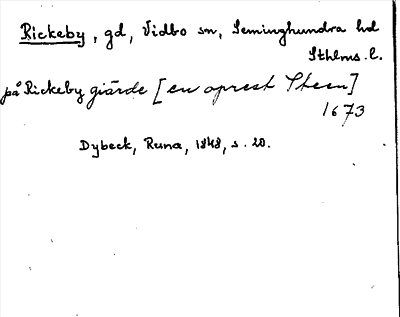 Rickeby, gd, Vidbo sn, Seminghundra hd
Sthlms l.
på Rickeby giärde [en oprest Steen]
1673
Dybeck, Runa, 1848, s. 20.